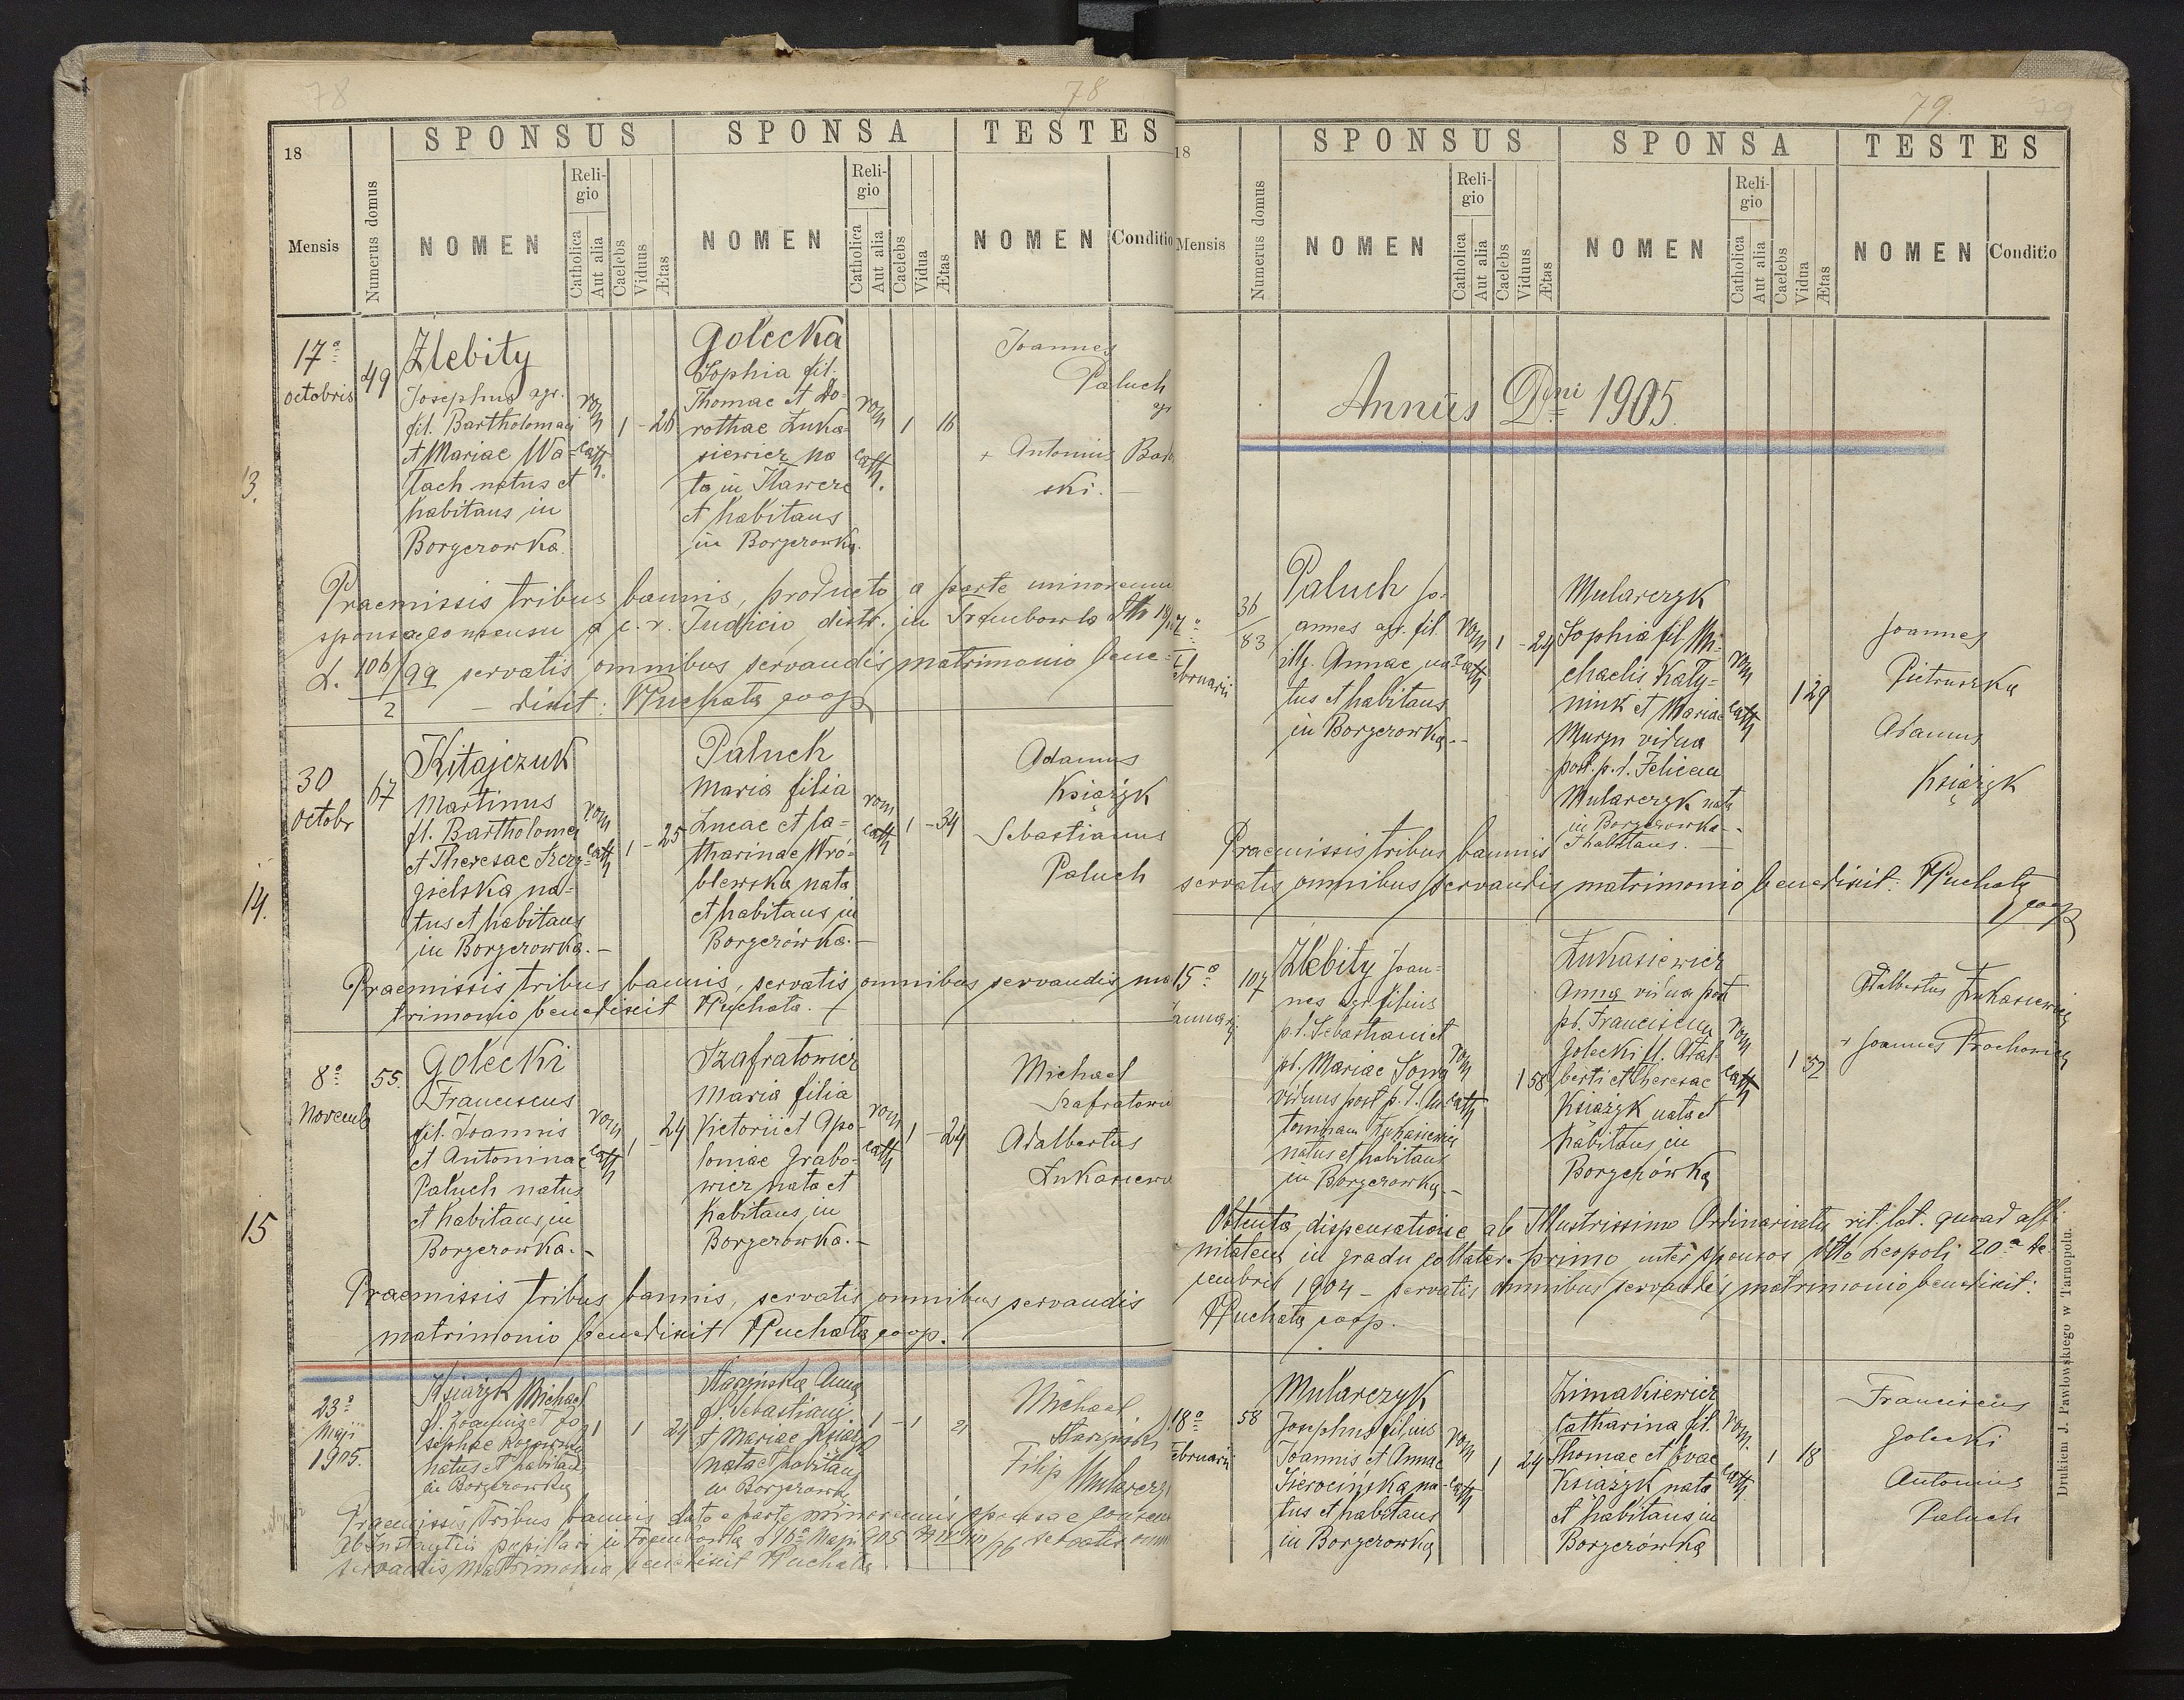 78
78
SPONSUS SPONSA TESTES
18
Mensis
Numerus domus
NOMEN
Reli-
gio
Catholica
Aut alia
Caelebs
Viduus
Ætas
NOMEN
Reli-
gio
Catholica
Aut alia
Caelebs
Vidua
Ætas
NOMEN
Conditio
13.
17a
octobris
49
Zlebity
Josephus agr.
fil. Bartholomaei
et Mariae Wa-
tach natus et
habitans in
Borgerowka.
rom
cath.
1 - 26
Golecka
Sophia fil.
Thomae et Do-
rothae Łuka-
siewicz na
ta in
et habitans
in Borgerowka.
rom
cath.
1 16
Joannes
Paluch
agr
+ Antonius
ski. -
Praemissis tribus bannis, producto a parte minorenni
sponsae consensu a c. r. Judicio distr. in Trembowla
L. 106/99 servatis omnibus servandis matrimonio bene-
2
- dixit: Puchata coop
14.
30
octobr
67
Kitajczuk
Martinus
fl. Bartholomei
et Theresae
gielska na-
tus et habitans
in Borgerowka. -
rom
cath
1 - 25
Paluch
Maria filia
Lucae et Ca-
tharinae Wró-
blewska nata
et habitans in
Borgerówka. -
rom
cath
1 - 34
Adamus
Książyk
Sebastianus
Paluch
Praemissis tribus bannis, servatis omnibus servandis ma
trimonio benedixit Puchata.
15
8a
Novemb
55
Golecki
Franciscus
fil. Joannis
et Antoninae
Paluch natus
et habitans in
Borgerowka. -
rom
cath
1 - 24
Szafratowicz
Maria filia
Victorii et Apo-
loniae Grabo-
wicz nata et
habitans in
Borgerowka. -
rom
cath
1 - 24
Michael
Szafratowic
Adalbertus
Łukasiewic
Praemissis tribus bannis, servatis omnibus servandis
matrimonio benedixit Puchata coop.
23a
Maji
1905.
Książyk Michael
fl. Joannis et Jo
sephae
natus et habitans
in Borgerowka
1 1 24
Anna
fl. Sebastiani
et Mariae Książyk
nata et habitans
in Borgerowka
1 - 1 21
Michael
Filip Mularczyk
Praemissis tribus bannis data a parte minorennis sponsae consen
in Trembowla
servandis matrimonio benedixit Puchata.
79.
79
SPONSUS SPONSA TESTES
18
Mensis
Numerus domus
NOMEN
Reli-
gio
Catholica
Aut alia
Caelebs
Viduus
Ætas
NOMEN
Reli-
gio
Catholica
Aut alia
Caelebs
Vidua
Ætas
NOMEN
Conditio
Annus Dni 1905.
Februarii
36
83
Paluch Jo-
annes agr. fil.
illg. Annae na-
tus et habitans
in Borgerowka. -
rom
cath
1 - 24
Mularczyk
Sophia fil. Mi-
chaelis Katy-
niuk et Mariae
vidua
post. p. d. Felicem
Mularczyk nata
in Borgerowka -
et habitans. -
rom
cath
1 29
Joannes
Pietruszka
Adamus
Książyk
Praemissis tribus bannis
servatis omnibus servandis matrimonio benedixit: Puchata
coop
15a
Januarij
107
Zlebity Joan-
nes agr. filius
p. d. Sebastiani et
pd. Mariae
viduus post p. d. An
toninam Łukasiewicz
natus et habitans
in Borgerowka. -
rom
cath
1 58
Łukasiewicz
Anna vidua post
pd. Franciscum
Golecki fl. Adal-
berti et Theresae
Książyk nata et
habitans in
Borgerówka
rom
cath
1 57
Adalbertus Łukasiewicz
+ Joannes
Obtenta dispensatione ab Illustrissimo Ordinariatu rit. lat. quoad affi
nitatem in gradu collater. primo inter sponsos ddto Leopoli 20a De-
cembris 1904 - servatis omnibus servandis matrimonio benedixit:
Puchata coop.
18a
Februarii
58
Mularczyk
Josephus filius
Joannis et Annae
Sierocińska na-
tus et habitans
in Borgerowka
rom
cath
1 24
Zimakiewicz
Catharina fil.
Thomae et Evae
Książyk nata
et habitans in
Borgerówka
rom.
cath.
1 18
Franciscus
Golecki
Antonius
Paluch
Drukiem J. Pawłowskiego w Tarnopolu.